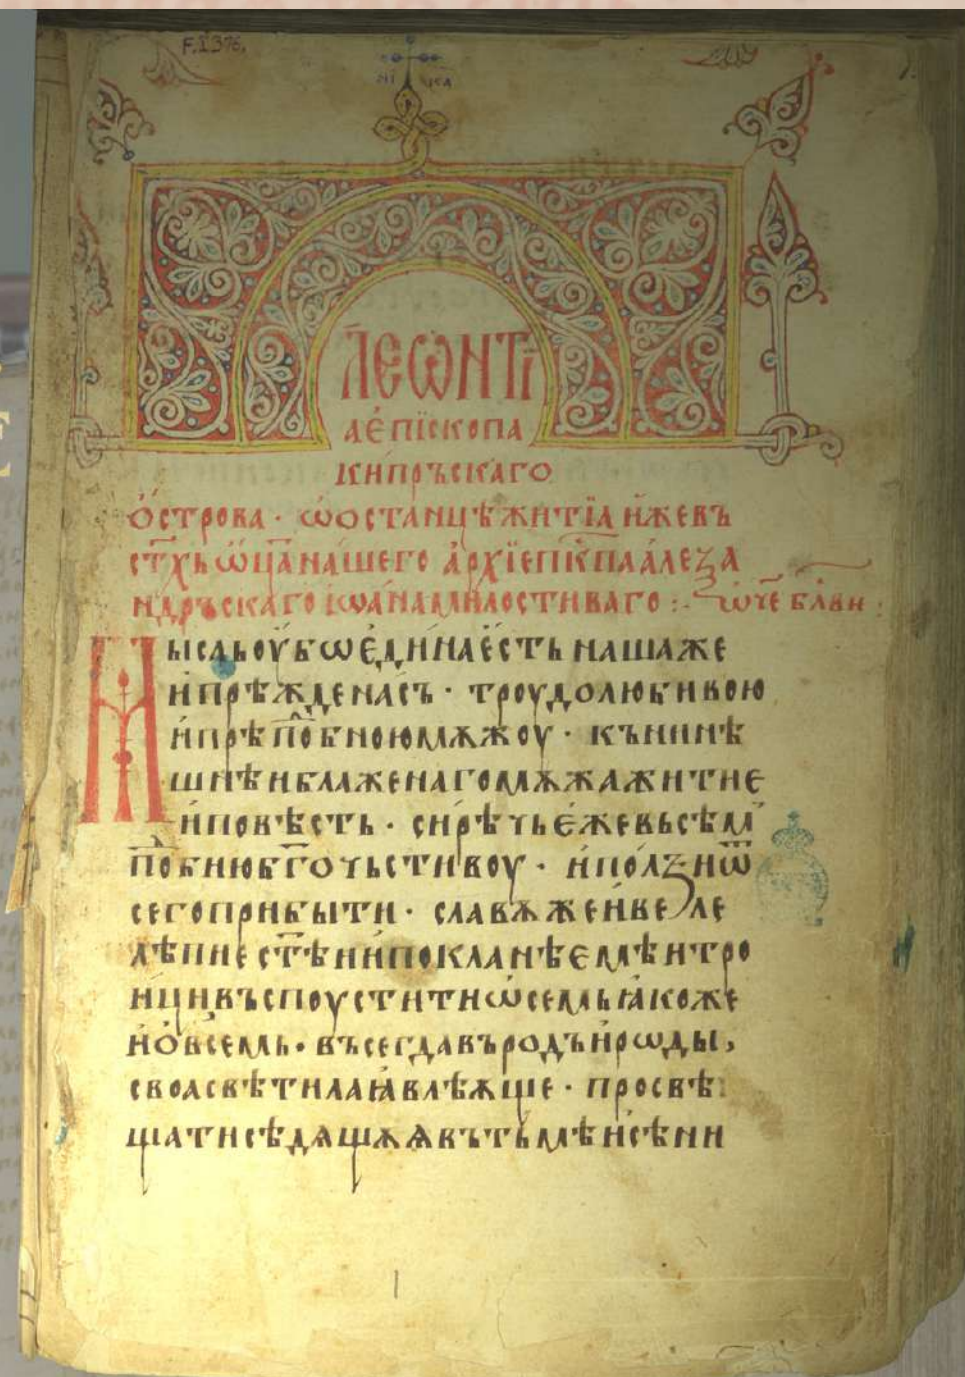 F.I.376.
НІ КА
ЛЕѠНТІ
АЕ́ПЇСКОПА
КИПРЪСКАГО
О́СТРОВА · ѠОСТАНЦѢЖИТЇꙖИ́ЖЕВЪ
СТ҃ХЬѠ҆Ц҃АНА́ШЕГО А҆РХЇЕПК҇ПАА́ЛЕꙀА
НДРЪСКАГОІѠА́НАМЛ҇ОСТИВАГО :· Ѡ҆Ч҃Е БЛ҇ВИ :
МЫСЛЬОУ҆БѠЕ҆ДИ́НАЕ҆СТЬ НАШАЖЕ
И҆ПРѢ́ЖДЕНАСЪ · ТРОУДОЛЮБИВОЮ
И҆ПРѢПОⷣБНОЮМѪЖОУ · КЪНИНѢ
ШНѢИБЛАЖЕНАГОМѪЖАЖИТИЕ
И҆ПОВѢСТЬ · СИ́РѢЧЬЕ҆ЖЕВЬСѢМ
ПОⷣБНЮБ҃ГОЧЬСТИВОУ · И҆ПО́ЛꙀИѾ
СЕГОПРИБЫТИ · СЛАВѪЖЕИ҆ВЕ ЛЕ
ЛѢПИЕ СТ҃ѢИИ҆ПОКЛАНѢЕМѢИТРО
ИЦИВЪСПОУСТИТИѠ҆СЕМЬꙖ҆КОЖЕ
И҆Ѻ҆ВСЕМЬ · ВЪСЕГДАВЪРОДЪИ҆РѠДЫ,
СВОАСВѢТИЛАꙖ҆ВЛѢѪЩЕ · ПРОСВѢ
ЩАТИСѢДѦЩѪѪВЪТЬМѢИ҆СѢНИ